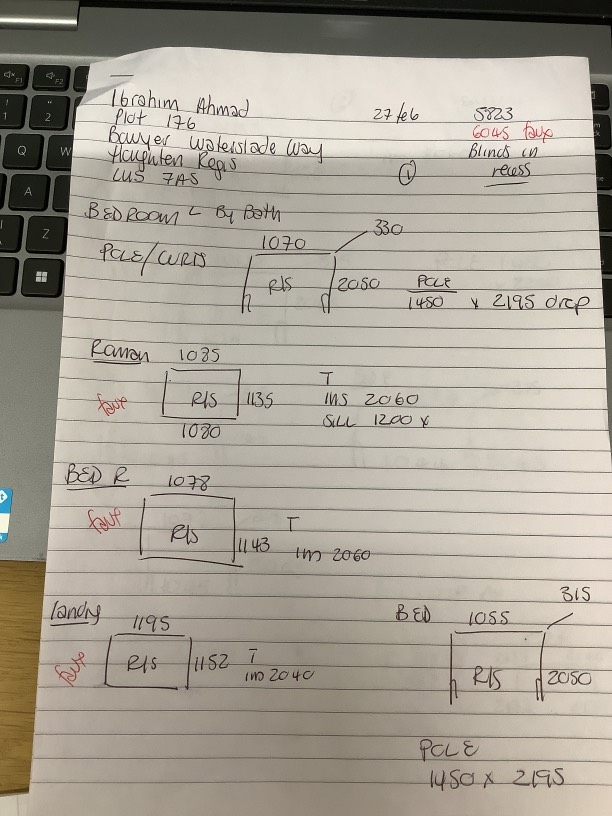 Ibrahim Ahmad
Plot 176
Bowyer Waterslade Way
Haughten Regis
LU5 7AS
27 feb
5823
6045 faux
Blinds in
recess
1
BEDROOM L By Both
POLE/CURTS
1070
330
R/S
2050
POLE
1450 x 2195 drop
1085
faux
R/S
1135
1080
T
INS 2060
SILL 1200 x
BED R
1078
faux
R/S
1143
T
Im 2060
Landg
1195
faux
R/S
1152
T
Im 2040
BED
1055
315
R/S
2050
POLE
1450 x 2195
F1
F2
1
2
Q
W
A
Z